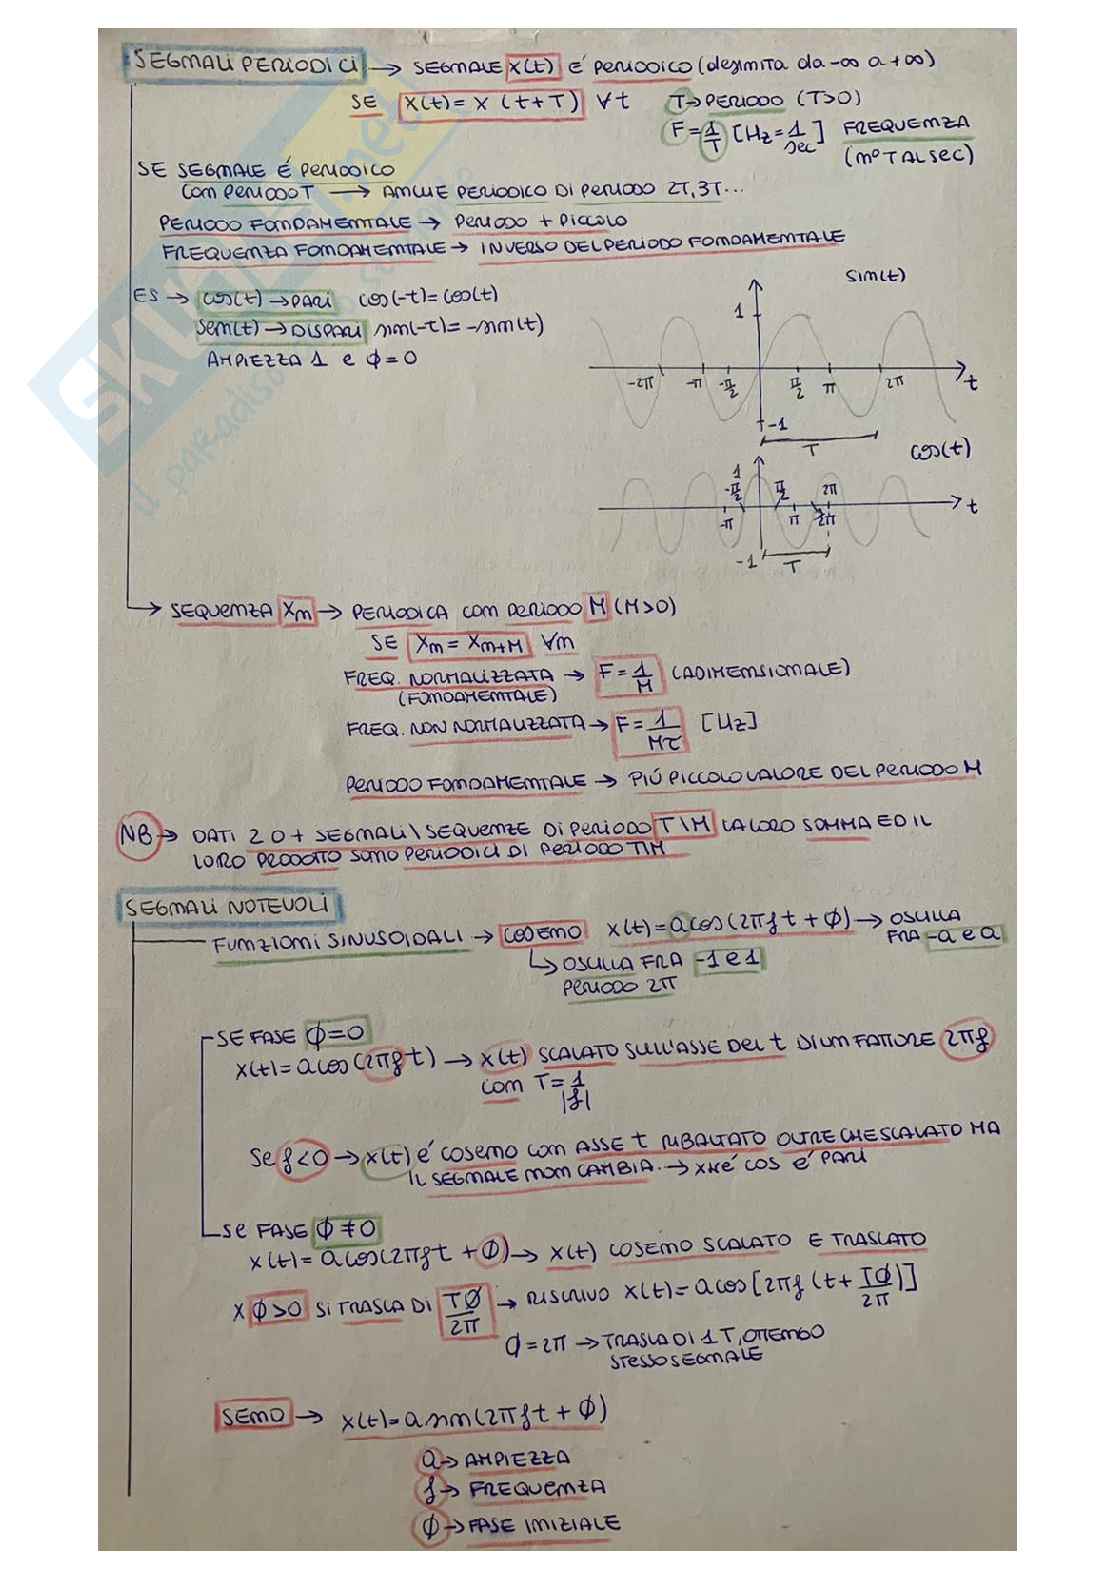 SEGNALI PERIODICI → SEGNALE x(t) É PERIODICO (definita da -∞ a +∞)
SE x(t) = x (t+T) ∀t T→PERIODO (T>0)
F = 1/T [Hz = 1/sec] FREQUENZA
(n° T AL SEC)
SE SEGNALE É PERIODICO
CON PERIODO T → ANCHE PERIODICO DI PERIODO 2T, 3T...
PERIODO FONDAMENTALE → PERIODO + PICCOLO
FREQUENZA FONDAMENTALE → INVERSO DEL PERIODO FONDAMENTALE
ES → cos(t) → PARI cos(-t) = cos(t)
sen(t) → DISPARI sin(-t) = -sin(t)
AMPIEZZA 1 e ϕ = 0
sin(t)
1
-2π -π -π/2 π/2 π 2π t
-1
T
cos(t)
1
-π/2 π/2 2π
-π π 2π t
-1
T
SEQUENZA Xn → PERIODICA CON PERIODO N (N>0)
SE Xn = Xn+N ∀n
FREQ. NORMALIZZATA → F = 1/N (ADIMENSIONALE)
(FONDAMENTALE)
FREQ. NON NORMALIZZATA → F = 1/Nτ [Hz]
PERIODO FONDAMENTALE → PIÚ PICCOLO VALORE DEL PERIODO N
NB → DATI 2 O + SEGNALI\SEQUENZE DI PERIODO T\N LA LORO SOMMA ED IL
LORO PRODOTTO SONO PERIODICI DI PERIODO T\N
SEGNALI NOTEVOLI
FUNZIONI SINUSOIDALI → COSENO x(t) = a cos(2πft + ϕ) → OSCILLA
FRA -a e a
↳ OSCILLA FRA -1 e 1
PERIODO 2π
SE FASE ϕ=0
x(t) = a cos(2πft) → x(t) SCALATO SULL'ASSE DEI t DI UN FATTORE 2πf
CON T = 1/|f|
Se f<0 → x(t) é COSENO CON ASSE t RIBALTATO OLTRE CHE SCALATO MA
IL SEGNALE NON CAMBIA. → XKÉ COS É PARI
SE FASE ϕ≠0
x(t) = a cos(2πft + ϕ) → x(t) COSENO SCALATO E TRASLATO
X ϕ>0 SI TRASLA DI Tϕ/2π → RISCRIVO x(t) = a cos[2πf (t + Tϕ/2π)]
ϕ = 2π → TRASLA DI 1 T, OTTENGO
STESSO SEGNALE
SENO → x(t) = a sin(2πft + ϕ)
a → AMPIEZZA
f → FREQUENZA
ϕ → FASE INIZIALE